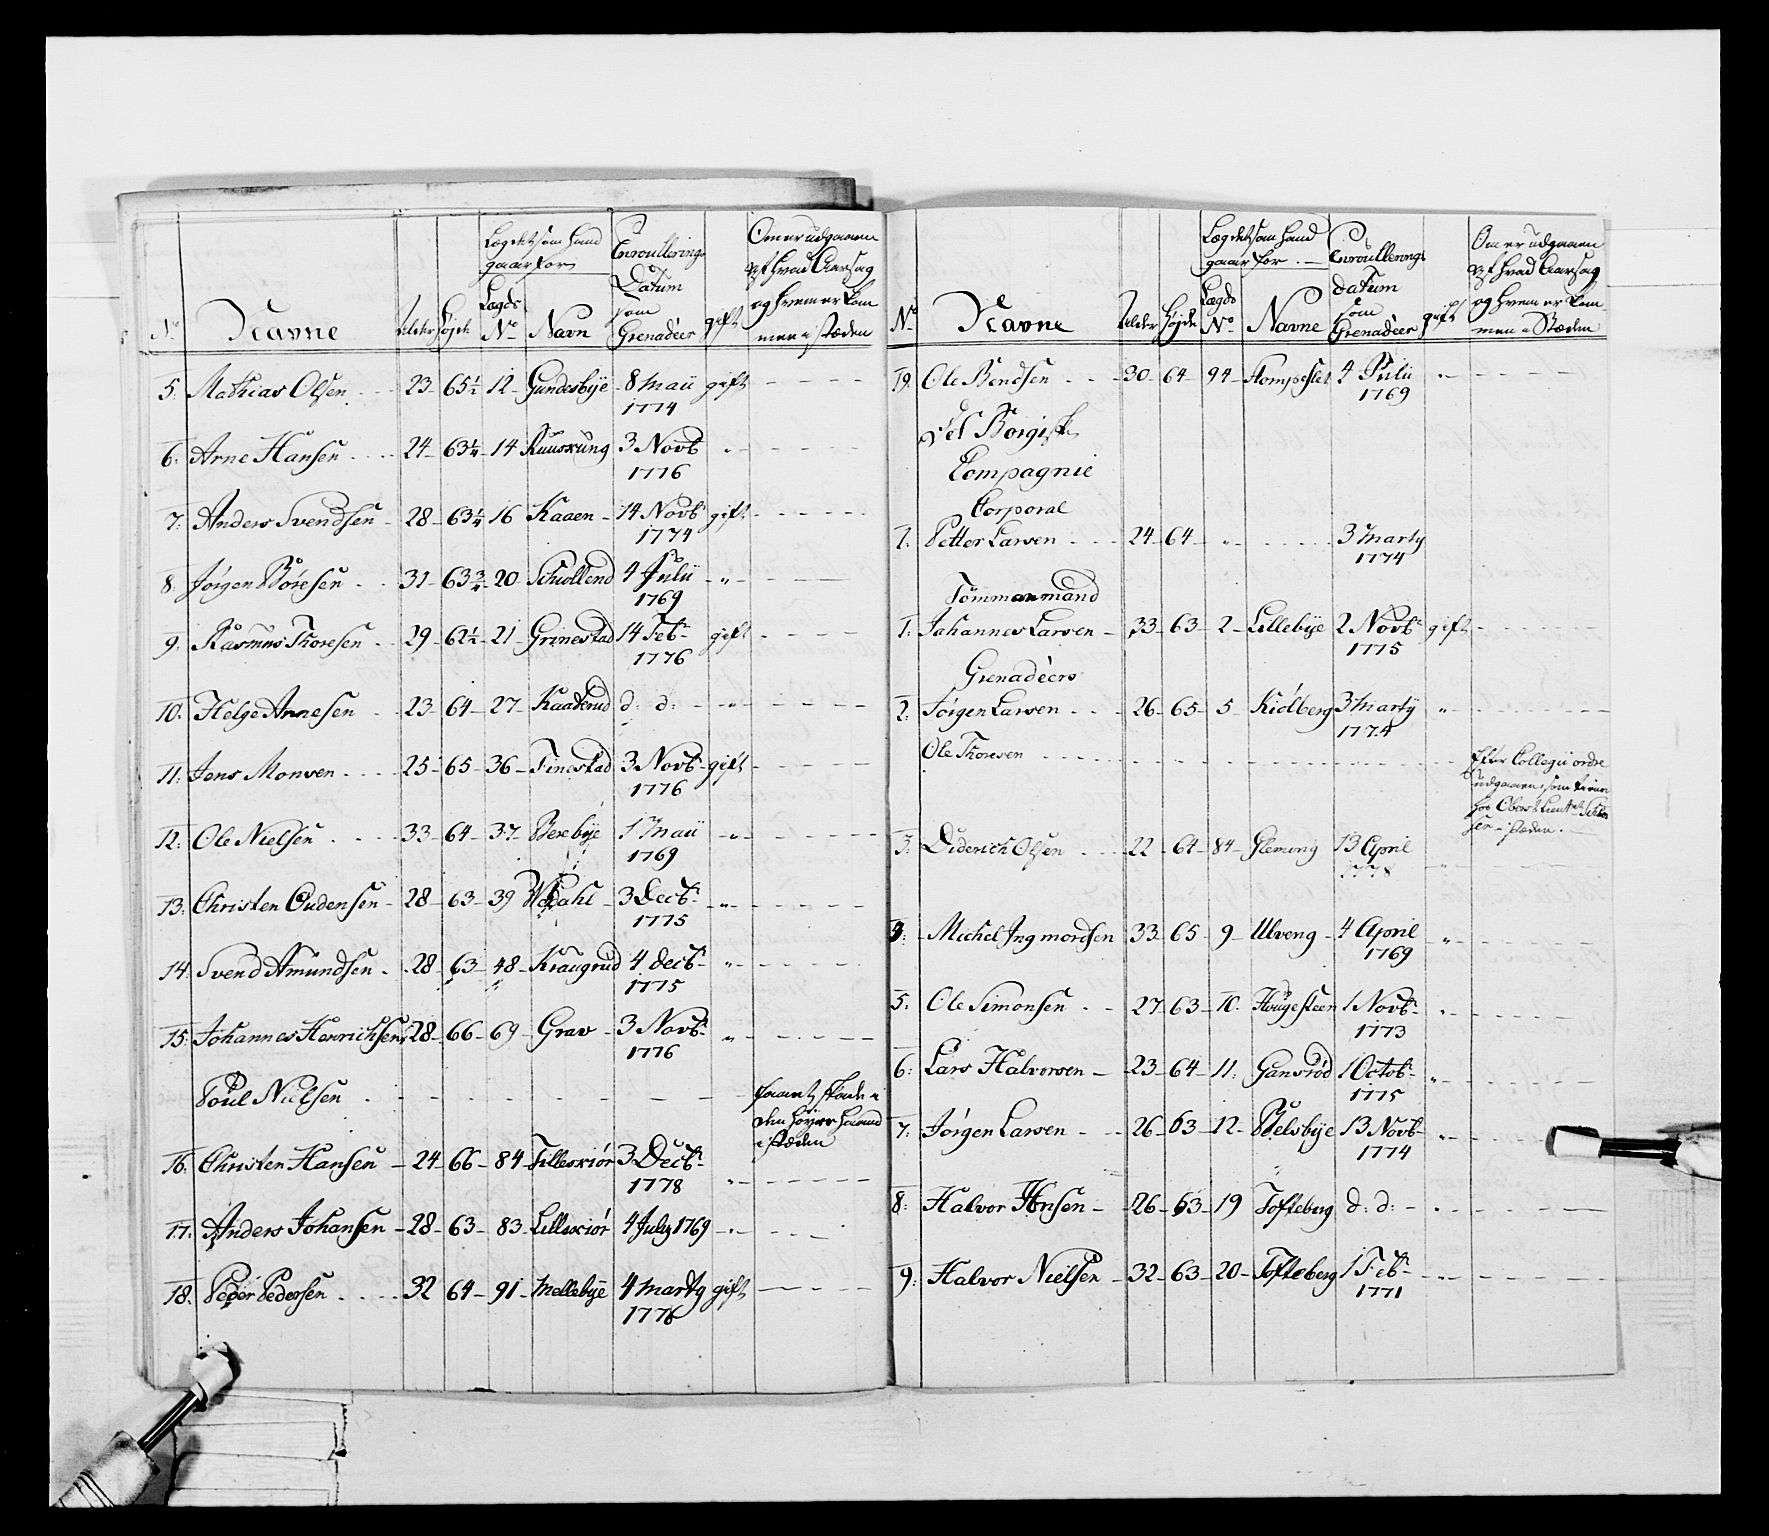 Lægdet som hand
gaar for
Enroullerings
Datum
som
Grenadéer
Om er udgaaen
af hvad Aarsag
og hvem er kom
men i stæden
No Navne Alder Højde Lægds No Navn gift
5. Mathias Olsen 23 65½ 12 Gundesbye 8 Maii gift
1774
6. Arne Hansen 24 63¼ 14 3 Novb
1776
7. Anders Svendsen 28 63¼ 16 Kaaen 14 Novbr gift
1774
8. Jørgen Børesen 31 63¾ 20 4 Julii
1769
9. Rasmus Thoresen 29 62½ 21 Grinestad 14 Feb. gift
1776
10. Helge Arnesen 23 64 27 Kaaterud d: d:
11. Jens Monsen 25 65 36 Finestad 3 Novb. gift
1776
12. Ole Nielsen 33 64 37 Berebye 1 Maii
1769
13. Christen Gudensen 28 63 39 Dahl 3 Decb.
1775
14. Svend Amundsen 28 63 48 Kraugrud 4 decb.
1775
15. Johannes Henrichsen 28 66 69 Grav 3 Novb.
1776
Poul Nielsen faaet skade i
den højre haand
i stæden
16. Christen Hansen 24 66 84 Lillexiør 3 Decb.
1778
17. Anders Johansen 28 63 83 Lillexiør 4 July 1769
18. Peder Pedersen 32 64 91 Mellebye 4 Marty gift
1776
Lægdet som hand
gaar for
Enroullerings
datum
som
Grenadéer
Om er udgaaen
af hvad Aarsag
og hvem er kom
men i Stæden
No Navne Alder Højde Lægds No Navne gift
19. Ole Bendsen 30 64 94 4 Julii
1769
Det Borgiske
Compagnie
Corporal
1. Petter Larsen 24 64 3 Marty
1774
Tømmermand
1. Johannes Larsen 33 63 2 Lillebye 2 Novb. gift
1775
Grenadéers
2. Jørgen Larsen 26 65 5 Kiølberg 3 Marty
1774
Ole Thoresen Efter Collegii ordre
udgaaen, som tiener
hos Oberst Lieut.
i stæden.
3. Diderich Olsen 22 64 84 Glemmig 13 April
1778
4. Michel Ingmordsen 33 65 9 Ulveng 4 April
1769
5. Ole Simonsen 27 63 10. Haugesteen 1 Novb.
1773
6. Lars Halvorsen 23 64 11. Gansrød 1 Octob.
1775
7. Jørgen Larsen 26 63 12 Belsbye 13 Novb.
1774
8. Halvor Hansen 26 63 19 Tofteberg d: d:
9. Halvor Nielsen 32 63 20 Tofteberg 1 Feb.
1771